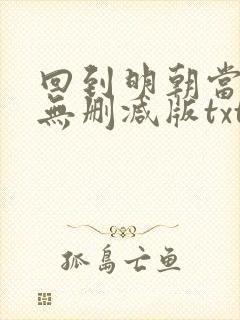 回到明朝當
無刪減版txt
孤島亡鱼